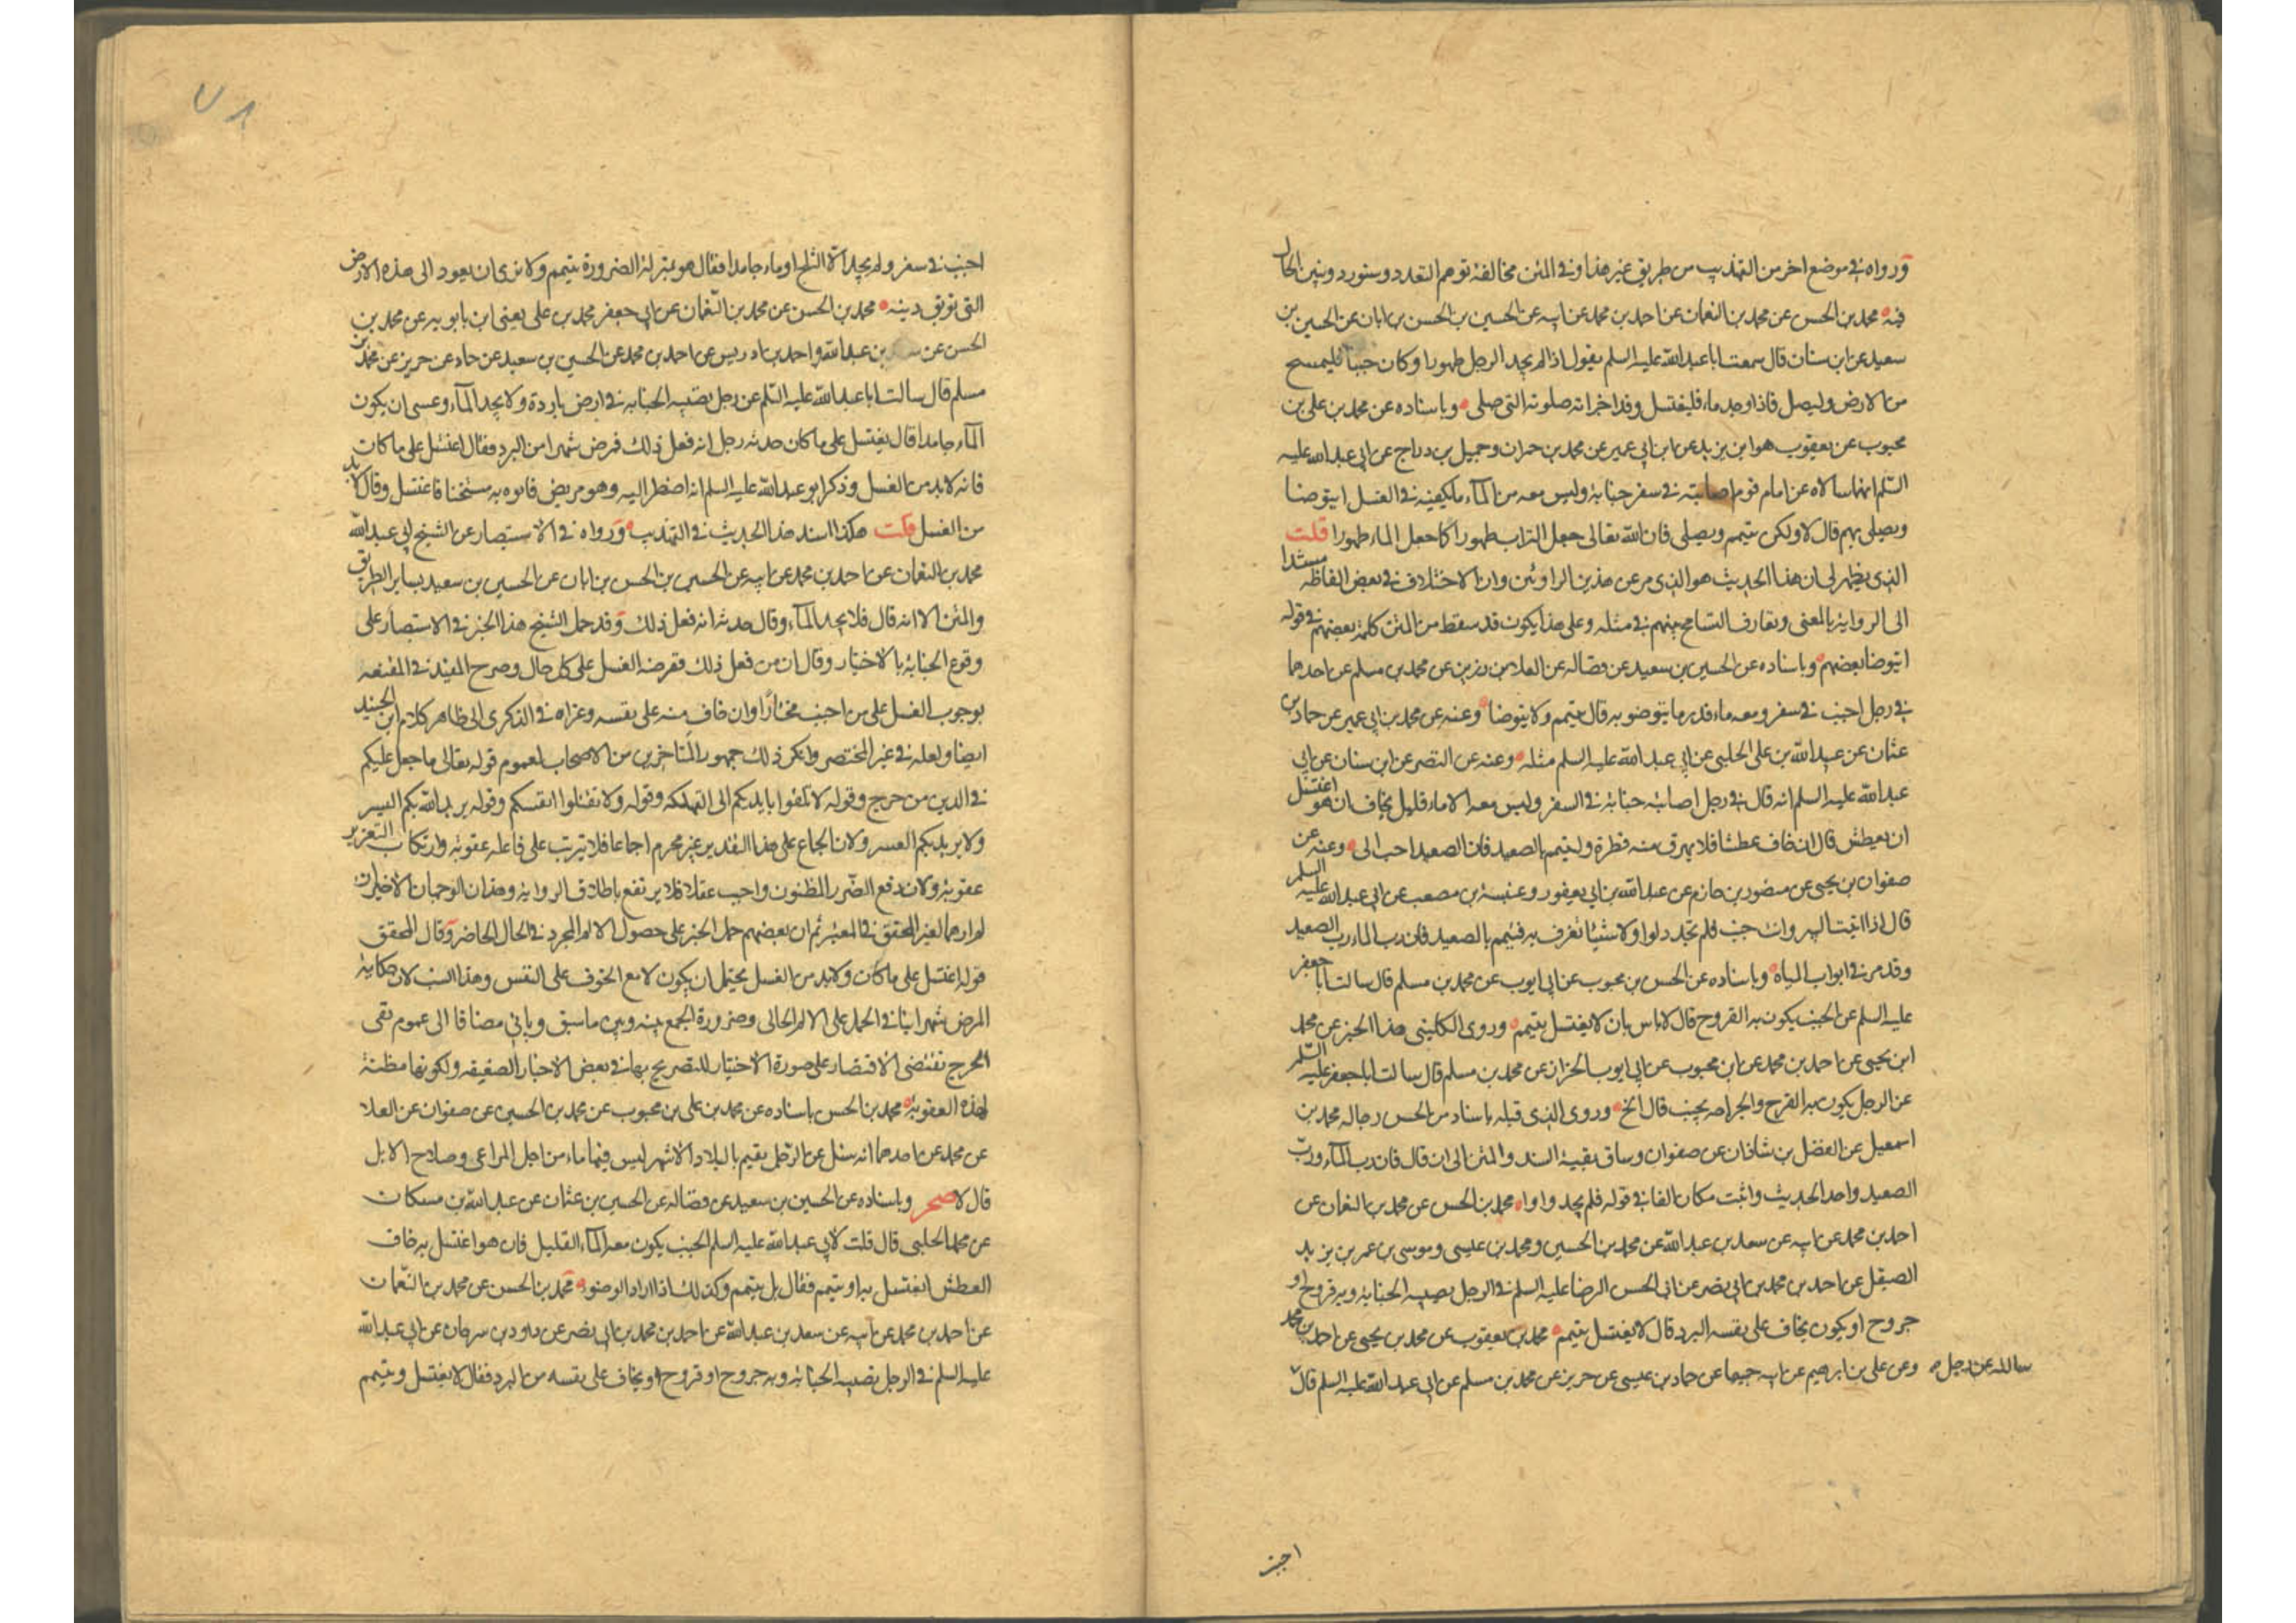 ورواه في موضع اخر من التهذيب من طريق غير هذا وفي المتن مخالفة توهم التعدد وسنورد ونبين الحال
فيه محمد بن الحسن عن محمد بن النعمان عن احمد بن محمد عن ابيه عن الحسين بن الحسن بن ابان عن الحسين بن
سعيد عن ابن سنان قال سمعت ابا عبد الله عليه السلم يقول اذا لم يجد الرجل طهورا وكان جنبا فليمسح
من الارض وليصل فاذا وجد ماء فليغتسل وقد اجزاته صلوته التي صلى وباسناده عن محمد بن علي بن
محبوب عن يعقوب هو ابن يزيد عن ابن ابي عمير عن محمد بن حمران وجميل بن دراج عن ابي عبد الله عليه
السلم انهما سالاه عن امام قوم اصابته في سفر جنابة وليس معه من الماء ما يكفيه في الغسل ايتوضا
ويصلي بهم قال لا ولكن يتيمم ويصلي فان الله تعالى جعل التراب طهورا كما جعل الماء طهورا قلت
الذي يظهر لي ان هذا الحديث هو الذي مر عن هذين الراويين وان الاختلاف في بعض الفاظه مستندا
الى الرواية بالمعنى وتعارف التسامح بينهم في مثله وعلى هذا يكون قد سقط من المتن كلمة بعضهم في قوله
ايتوضا بعضهم وباسناده عن الحسين بن سعيد عن فضالة عن العلا بن رزين عن محمد بن مسلم عن احدهما
في رجل اجنب في سفر ومعه ماء قدر ما يتوضو به قال يتيمم ولا يتوضا وعنه عن محمد بن ابي عمير عن حماد بن
عثمان عن عبيد الله بن علي الحلبي عن ابي عبد الله عليه السلم مثله وعنه عن النضر عن ابن سنان عن ابي
عبد الله عليه السلم انه قال في رجل اصابته جنابة في السفر وليس معه الا ماء قليل يخاف ان هو اغتسل
ان يعطش قال ان خاف عطشا فلا يهرق منه قطرة وليتيمم بالصعيد فان الصعيد احب الي وعنه عن
صفوان بن يحيى عن منصور بن حازم عن عبد الله بن ابي يعفور وعنبسة بن مصعب عن ابي عبد الله عليه السلم
قال اذا اتيت البير وانت جنب فلم تجد دلوا ولا شيئا تغرف به فتيمم بالصعيد فان رب الماء رب الصعيد
وقد مر في ابواب المياه وباسناده عن الحسن بن محبوب عن ابي ايوب عن محمد بن مسلم قال سالت ابا جعفر
عليه السلم عن الجنب يكون به القروح قال لا باس بان لا يغتسل يتيمم وروى الكليني هذا الخبر عن محمد
ابن يحيى عن احمد بن محمد عن ابن محبوب عن ابي ايوب الخزان عن محمد بن مسلم قال سالت ابا جعفر عليه السلم
عن الرجل يكون به القرح والجراحه يجنب قال الخ وروى الذي قبله باسناد من الحسن رجاله محمد بن
اسمعيل عن الفضل بن شاذان عن صفوان وساق بقية السند والمتن الى ان قال فان رب الماء ورب
الصعيد واحد الحديث واثبت مكان الفا في قوله فلم يجد واوا محمد بن الحسن عن محمد بن النعمان عن
احمد بن محمد عن ابيه عن سعد بن عبد الله عن محمد بن الحسين ومحمد بن عيسى وموسى بن عمر بن يزيد
الصيقل عن احمد بن محمد بن ابي نصر عن ابي الحسن الرضا عليه السلم في الرجل يصيبه الجنابة وبه قروح او
جروح او يكون يخاف على نفسه البرد قال لا يغتسل يتيمم محمد بن يعقوب عن محمد بن يحيى عن احمد بن محمد
وعن علي بن ابرهيم عن ابيه جميعا عن حماد بن عيسى عن حريز عن محمد بن مسلم عن ابي عبد الله عليه السلم قال
سالته عن رجل
اجنب
اجنب في سفر ولم يجد الا الثلج او ماء جامدا فقال هو بمنزلة الضرورة يتيمم ولا نرى ان يعود الى هذه الارض
التي توبق دينه محمد بن الحسن عن محمد بن النعمان عن ابي جعفر محمد بن علي يعني ابن بابويه عن محمد بن
الحسن عن بن عبد الله واحمد بن ادريس عن احمد بن محمد عن الحسين بن سعيد عن حماد عن حريز عن محمد بن
مسلم قال سالت ابا عبد الله عليه السلم عن رجل تصيبه الجنابه في ارض باردة ولا يجد الماء وعسى ان يكون
الماء جامدا قال يغتسل على ما كان حدثه رجل انه فعل ذلك فمرض شهرا من البرد فقال اغتسل على ما كان
فانه لا بد من الغسل وذكر ابو عبد الله عليه السلم انه اضطر اليه وهو مريض فاتوه به مسخنا فاغتسل وقال لا بد
من الغسل قلت هكذا اسند هذا الحديث في التهذيب ورواه في الاستبصار عن الشيخ ابي عبد الله
محمد بن النعمان عن احمد بن محمد عن ابيه عن الحسين بن الحسن بن ابان عن الحسين بن سعيد بساير الطريق
والمتن الا انه قال فلا يجد الماء وقال حدثه انه فعل ذلك وقد حمل الشيخ هذا الخبر في الاستبصار على
وقوع الجنابة بالاختيار وقال ان من فعل ذلك ففرضه الغسل على كل حال وصرح المفيد في المقنعه
بوجوب الغسل على من اجنب مختارا وان خاف منه على نفسه وعزاه في الذكرى الى ظاهر كلام ابن الجنيد
ايضا ولعله في غير المختصر وانكر ذلك جمهور المتاخرين من الاصحاب لعموم قوله تعالى ما جعل عليكم
في الدين من حرج وقوله لا تلقوا بايديكم الى التهلكه وقوله ولا تقتلوا انفسكم وقوله يريد الله بكم اليسر
ولا يريد بكم العسر ولان الجماع على هذا التقدير غير محرم اجماعا فلا يترتب على فاعله عقوبة وارتكاب التعزير
عقوبة ولان دفع الضرر المظنون واجب عقلا فلا يرتفع باطلاق الرواية وهذان الوجهان الاخيران
لم ارهما لغير المحقق في المعتبر ثم ان بعضهم حمل الخبر على حصول الالم المجرد في الحال الحاضر وقال المحقق
قوله اغتسل على ما كان ولا بد من الغسل يحتمل ان يكون لا مع الخوف على النفس وهذا انسب لان حكاية
المرض شهرا ينافي الحمل على الالم الحالي وضرورة الجمع بينه وبين ما سبق وياتي مضافا الى عموم نفى
الحرج تقتضي الاقتصار على صورة الاختيار للتصريح بها في بعض الاخبار الضعيفه ولكونها مظنة
لهذه العقوبة محمد بن الحسن باسناده عن محمد بن علي بن محبوب عن محمد بن الحسين عن صفوان عن العلا
عن محمد عن احدهما انه سئل عن الرجل يقيم بالبلاد الاشهر ليس فيها ماء من اجل المراعي وصلاح الابل
قال لا صحر وباسناده عن الحسين بن سعيد عن فضاله عن الحسين بن عثمان عن عبد الله بن مسكان
عن محمد الحلبي قال قلت لابي عبد الله عليه السلم الجنب يكون معه الماء القليل فان هو اغتسل به خاف
العطش ايغتسل به او يتيمم فقال بل يتيمم وكذلك اذا اراد الوضوء محمد بن الحسن عن محمد بن النعمان
عن احمد بن محمد عن ابيه عن سعد بن عبد الله عن احمد بن محمد بن ابي نصر عن داود بن سرحان عن ابي عبد الله
عليه السلم في الرجل تصيبه الجنابة وبه جروح او قروح او يخاف على نفسه من البرد فقال لا يغتسل ويتيمم